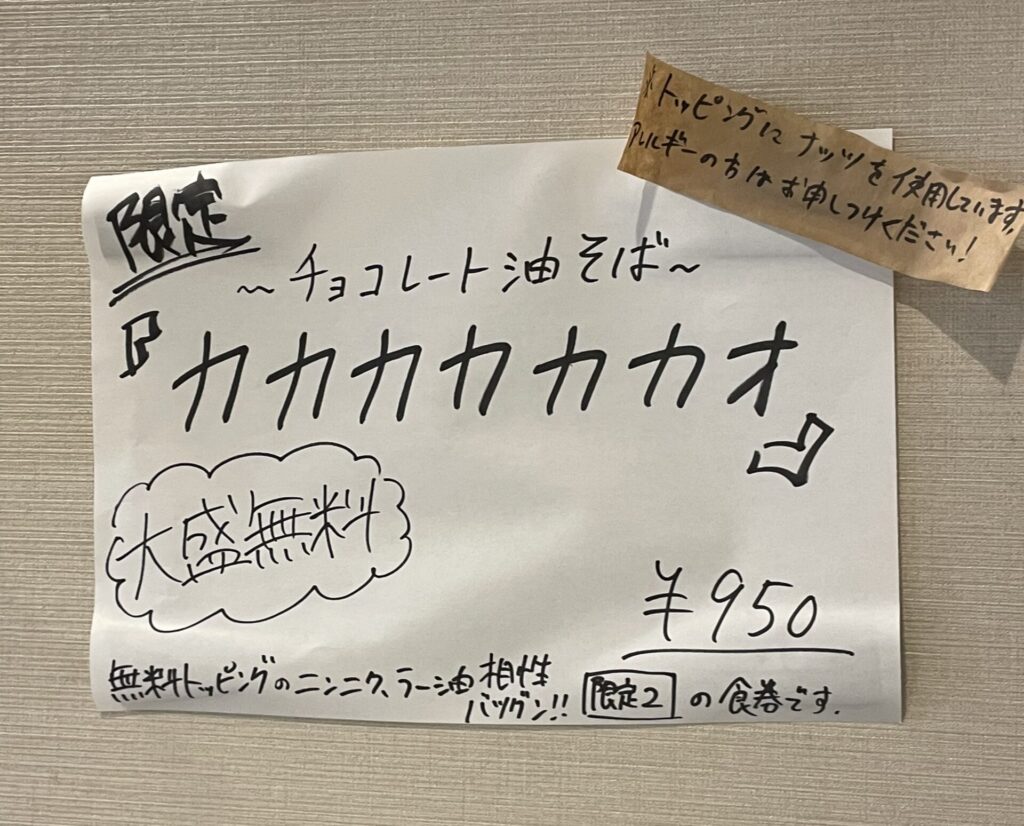 ※トッピングにナッツを使用しています。
アレルギーの方はお申しつけください!
限定
~チョコレート油そば~
『カカカカカカオ』
大盛無料
¥950
無料トッピングのニンニク、ラー油相性
バツグン!!
限定2の食券です.